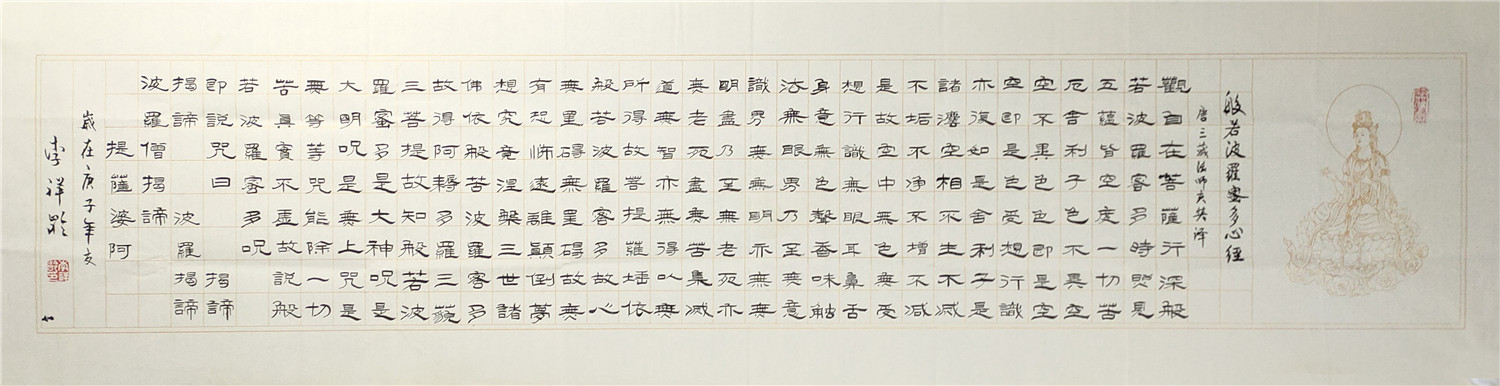 般若波羅蜜多心經
唐三藏法师玄奘译
觀自在菩薩行深般
若波羅蜜多時照見
五蘊皆空度一切苦
厄舍利子色不異空
空不異色色即是空
空即是色受想行識
亦復如是舍利子是
諸灋空相不生不滅
不垢不淨不增不減
是故空中無色無受
想行識無眼耳鼻舌
身意無色聲香味触
法無眼界乃至無意
識界無無明亦無無
明盡乃至無老死亦
無老死盡無苦集滅
道無智亦無得以無
所得故菩提薩埵依
般若波羅蜜多故心
無罣碍無罣碍故無
有恐怖遠離顛倒夢
想究竟涅槃三世諸
佛依般若波羅蜜多
故得阿耨多羅三藐
三菩提故知般若波
羅蜜多是大神呪是
大明呪是無上呪是
無等等咒能除一切
苦真實不虛故說般
若波羅蜜多呪
即說咒曰 揭諦
揭諦 波羅揭諦
波羅僧揭諦
提薩婆阿
歲在庚子年亥
李祥